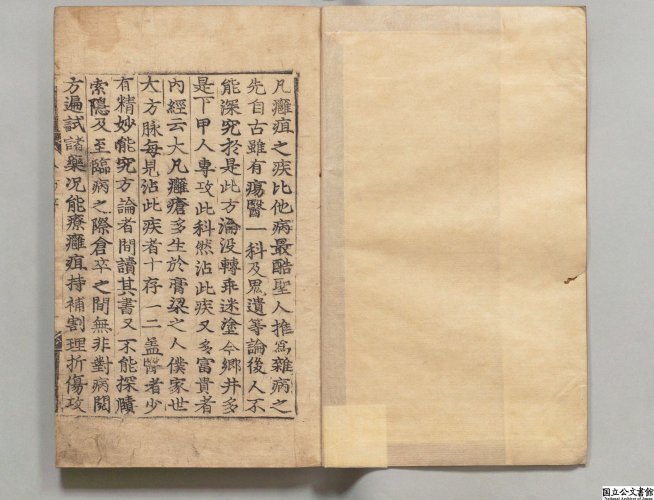 凡癰疽之疾比他病最酷聖人推爲雜病之
先自古雖有瘍醫一科及鬼遺等論後人不
能深究於是此方淪沒轉乖迷塗今鄉井多
是下甲人專攻此科然沾此疾又多富貴者
內經云大凡癰瘡多生於膏粱之人僕家世
大方脉每見沾此疾者十存一二盖醫者少
有精妙能究方論者間讀其書又不能探賾
索隱及至臨病之際倉卒之間無非對病閱
方遍試諸藥况能療癰疽持補割理折傷攻
国立公文書館
National Archives of Japan